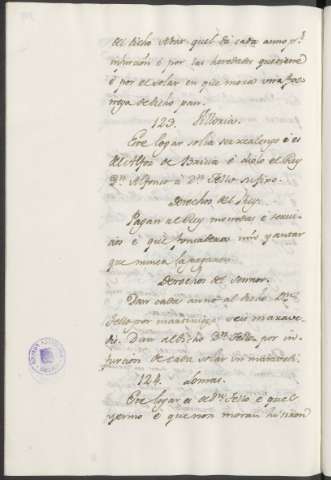 del dicho Abad quel dá cada anno p.r
infurción é por las heredades que tiene
é por el solar en que mora una fa
nega de dicho pan.
123. Villorias.
Este logar solía ser realengo é es
del Alfoz de Bricia é diolo el Rey
D.n Alfonso a D.n Tello su fijo.
Derechos del Rey.
Pagan al Rey monedas é servi
cios é que fonsadera nin yantar
que nunca la pagaron.
Derechos del Sennor.
Dan cada anno al dicho D.n
Tello por martiniega seis marave
dis. Dan al dicho D.n Tello por in
furción de cada solar un maravedi.
124. Lomas.
Este logar es de D.n Tello é quel
yermo é que non moran hi sinon